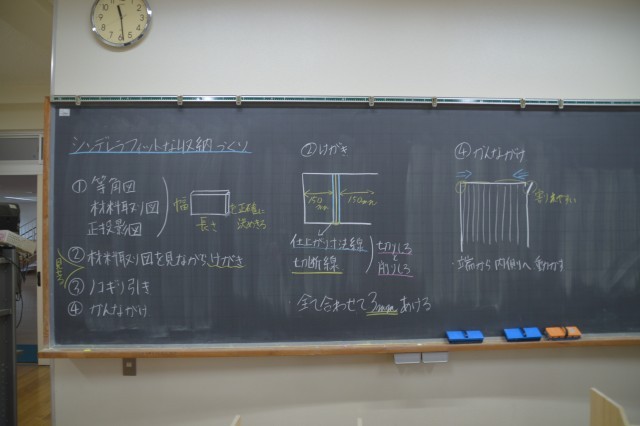 シンデレラフィットな収納づくり
① 等角図
材料取り図
正投影図
幅
長さ
を正確に
決める
② 材料取り図を見ながらけがき
③ ノコギリ引き
④ かんながけ
② けがき
150mm
150mm
仕上がり寸法線
切断線
切りしろ
と
削りしろ
・全て合わせて3mmあける
④ かんながけ
割れやすい
・端から内側へ動かす